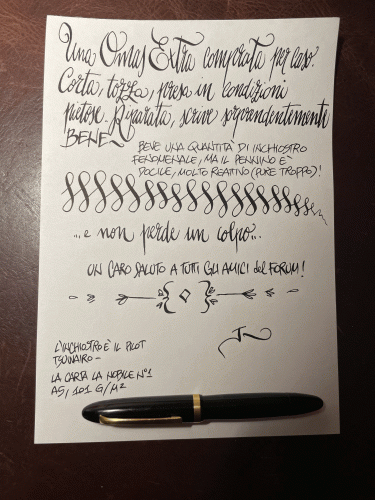 Una Omas Extra comprata per caso.
Corta, tozza, presa in condizioni
pietose. Riparata, scrive sorprendentemente
BENE
BEVE UNA QUANTITÀ DI INCHIOSTRO
FENOMENALE, MA IL PENNINO È
DOCILE, MOLTO REATTIVO (PURE TROPPO)!
... e non perde un colpo...
UN CARO SALUTO A TUTTI GLI AMICI del FORUM!
L'INCHIOSTRO È IL PILOT
TSUWAIRO -
LA CARTA LA NOBILE N°1
A5, 101 G/M²